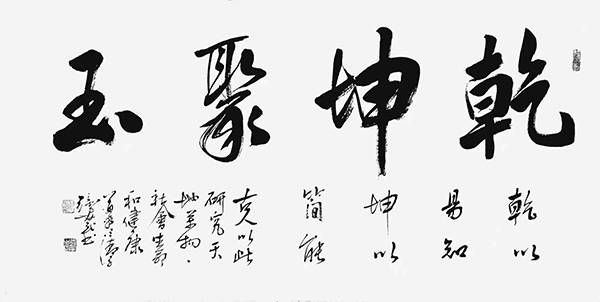 乾坤聚玉
乾以
易知
坤以
簡能
克以此
研究天
地萬物、
社會生
和健康
书